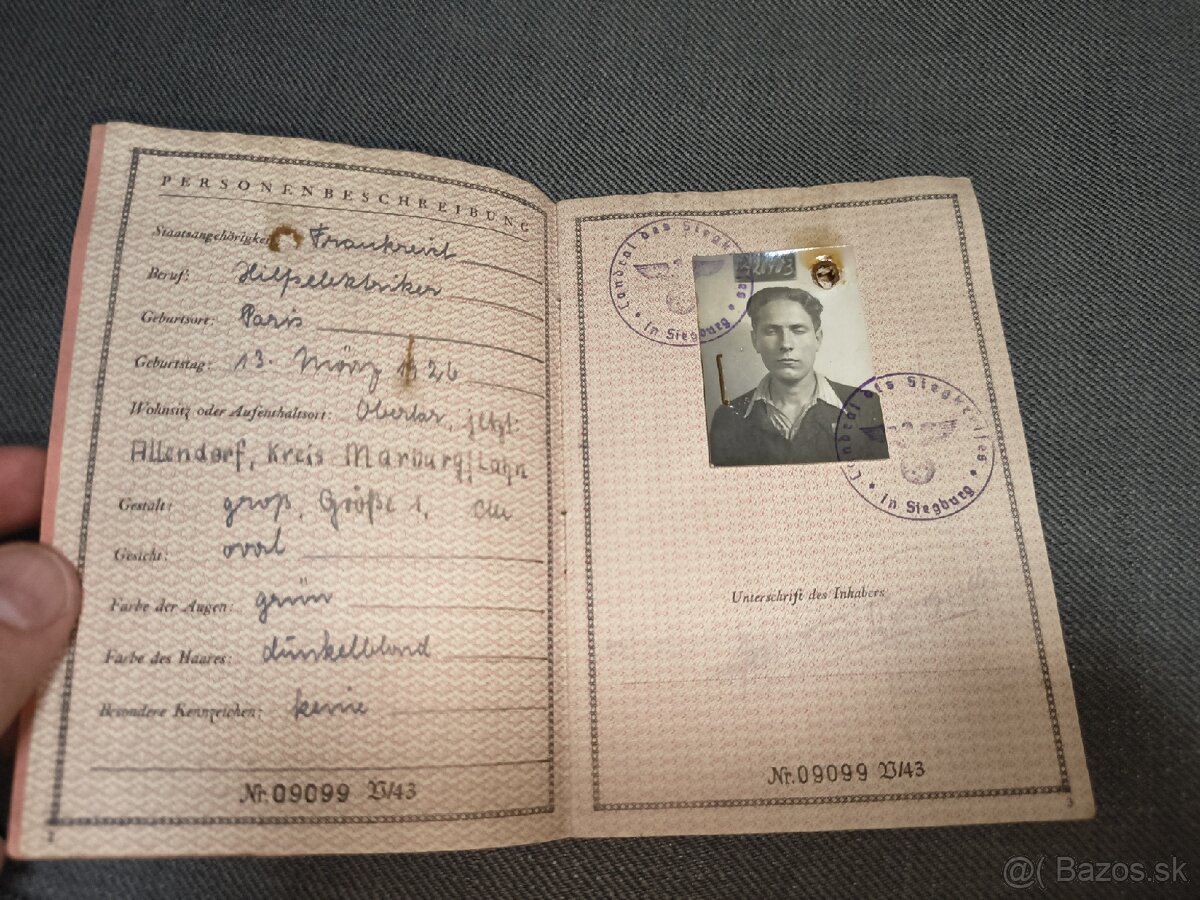 PERSONENBESCHREIBUNG
Staatsangehörigkeit Frankreich
Beruf: Hilfselektriker
Geburtsort: Paris
Geburtstag: 13. März 1926
Wohnsitz oder Aufenthaltsort: Oberlar, jetzt:
Allendorf, Kreis Marburg/Lahn
Gestalt: groß, Größe 1, cm
Gesicht: oval
Farbe der Augen: grün
Farbe des Haares: dunkelblond
Besondere Kennzeichen: keine
Nr. 09099 B/43
Landrat des Siegkreises
in Siegburg
Landrat des Siegkreises
in Siegburg
Unterschrift des Inhabers
Nr. 09099 B/43
3
@( Bazos.sk